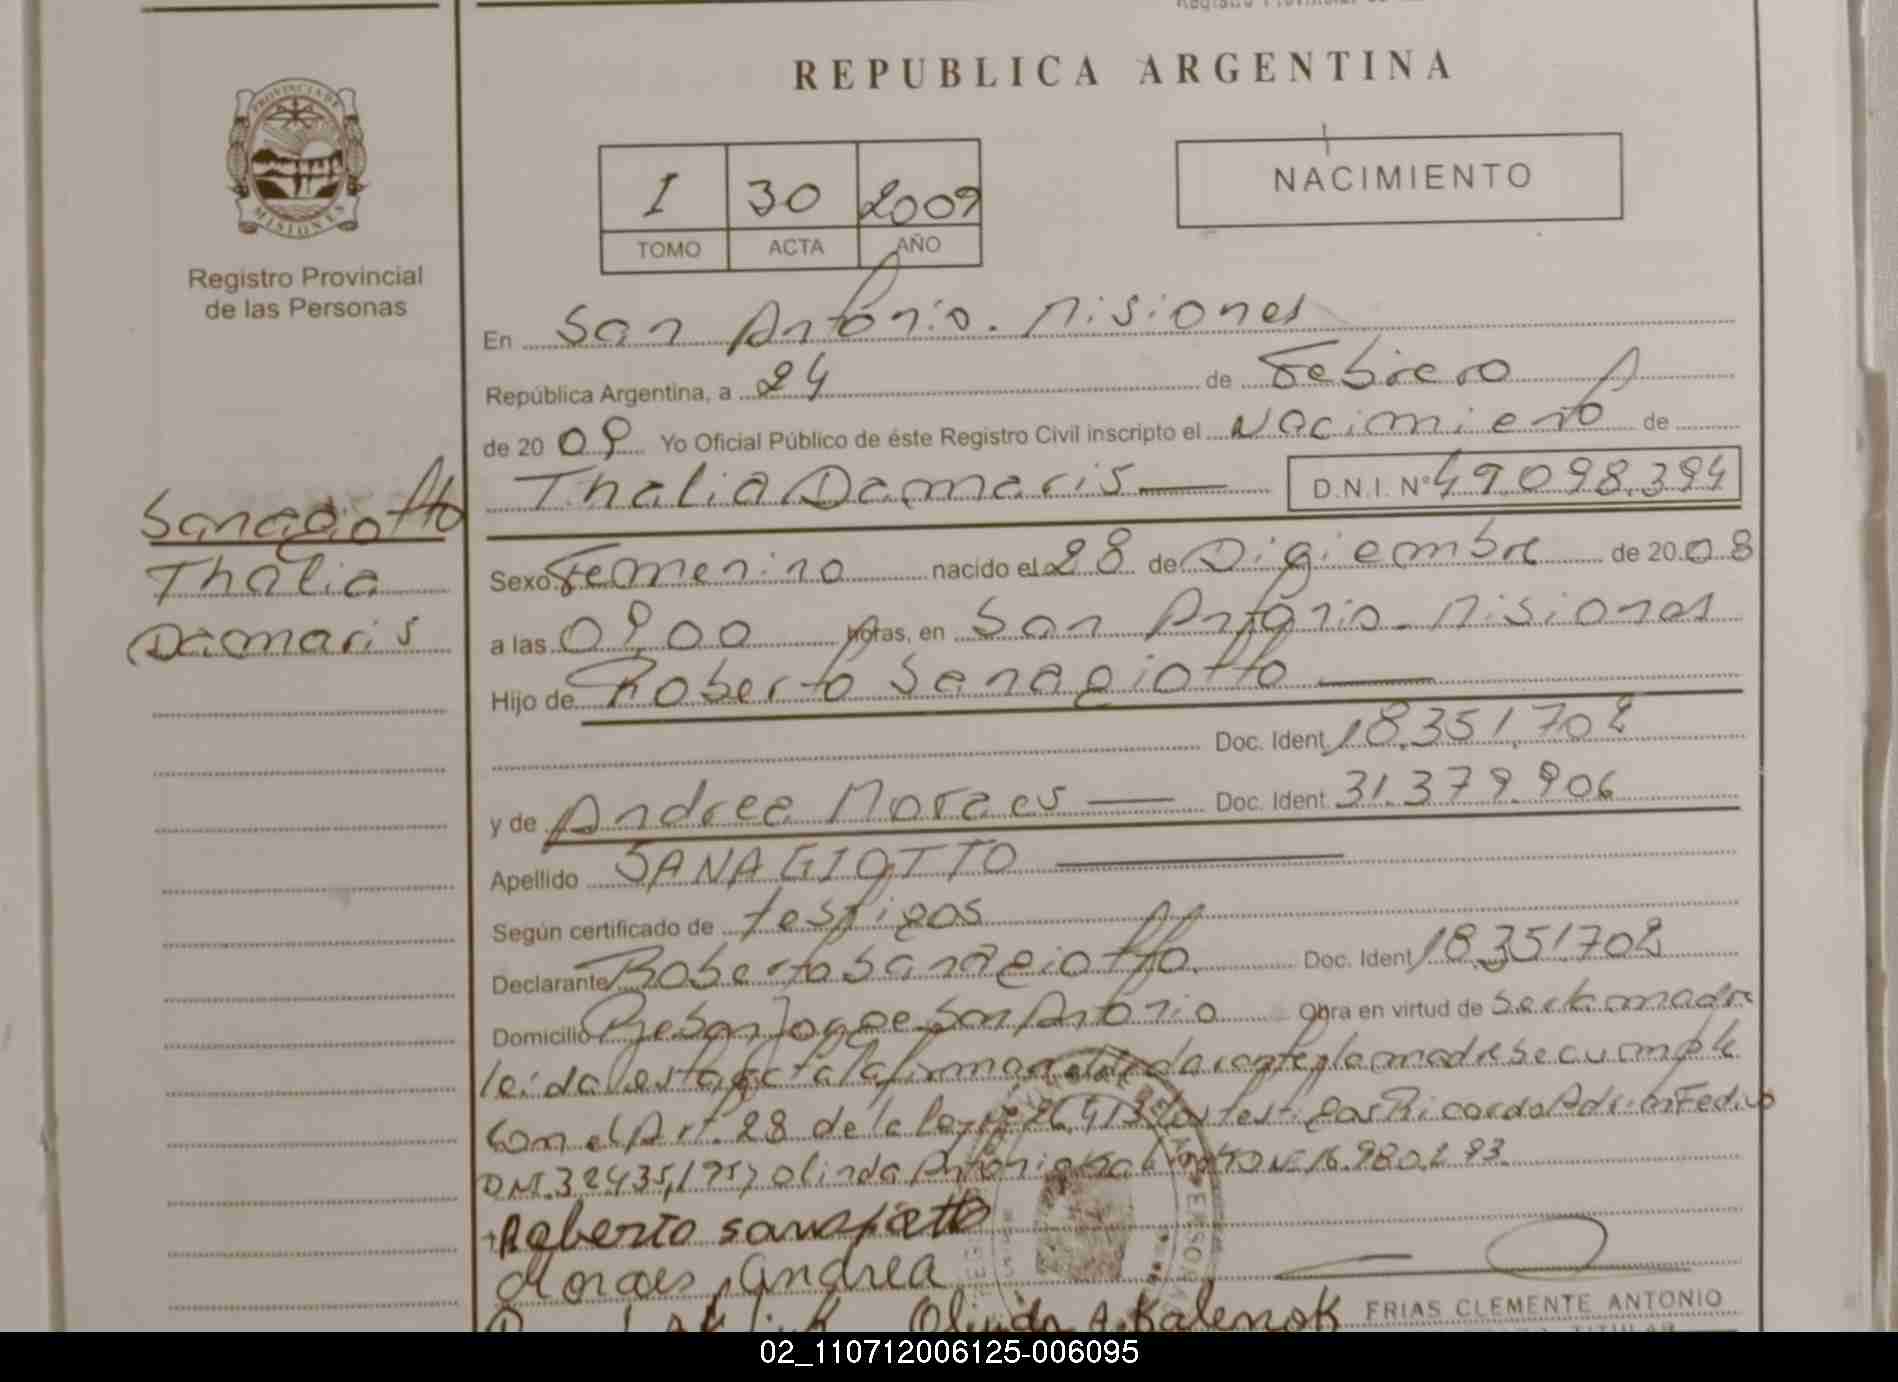 REPUBLICA ARGENTINA
PROVINCIA DE MISIONES
Registro Provincial
de las Personas
I 30 2009
TOMO ACTA AÑO
NACIMIENTO
En San Antonio. Misiones
República Argentina, a 24 de Febrero
de 20 09 Yo Oficial Público de éste Registro Civil inscripto el Nacimiento de
Thalia Damaris D.N.I. Nº 49.098.394
Sanagiotto
Thalia
Damaris
Sexo Femenino nacido el 28 de Digiembre de 20 08
a las 09,00 horas, en San Antonio - Misiones
Hijo de Roberto Sanagiotto
Doc. Ident. 18.351.702
y de Andrea Moraes Doc. Ident. 31.379.906
Apellido SANAGIOTTO
Según certificado de testigos
Declarante Roberto Sanagiotto. Doc. Ident. 18.351702
Domicilio San Jorge San Antonio Obra en virtud de ser la madre
leida esta acta la firman el declarante y la madre se cumple
Con el Art. 28 de la ley 26.413 los testigos Ricardo Adrian
DNI. 32435,175 y Olinda Antonia
Roberto sanagiotto
Moraes, andrea
Olinda A. Kalenok
FRIAS CLEMENTE ANTONIO
TITULAR
02_110712006125-006095